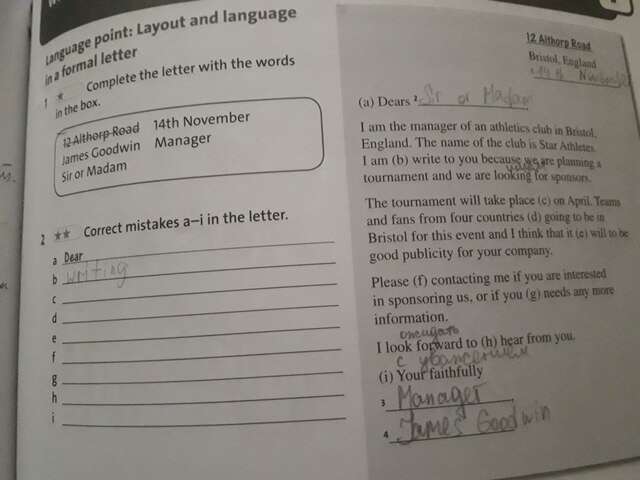 Language point: Layout and language
in a formal letter
1 ★ Complete the letter with the words
in the box.
12 Althorp Road 14th November
James Goodwin Manager
Sir or Madam
2 ★★ Correct mistakes a–i in the letter.
a Dear
b writing
c
d
e
f
g
h
i
12 Althorp Road
Bristol, England
(a) Dears ² Sir or Madam
I am the manager of an athletics club in Bristol,
England. The name of the club is Star Athletes.
I am (b) write to you because we are planning a
tournament and we are looking for sponsors.
The tournament will take place (c) on April. Teams
and fans from four countries (d) going to be in
Bristol for this event and I think that it (e) will to be
good publicity for your company.
Please (f) contacting me if you are interested
in sponsoring us, or if you (g) needs any more
information.
I look forward to (h) hear from you.
(i) Your faithfully
3 Manager
4 James Goodwin